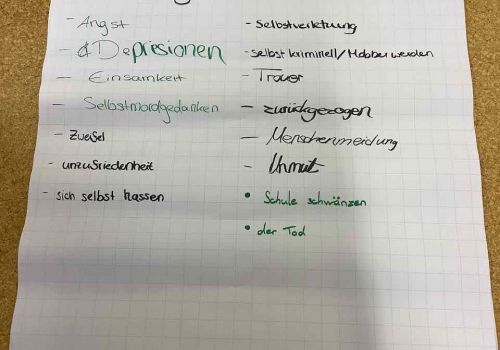 - Angst
- Depresionen
- Einsamkeit
- Selbstmordgedanken
- Zweifel
- unzufriedenheit
- sich selbst hassen
- Selbstverletzung
- selbst kriminell/Mobber werden
- Trauer
- zurückgezogen
- Menschenmeidung
- Unmut
• Schule schwänzen
• der Tod